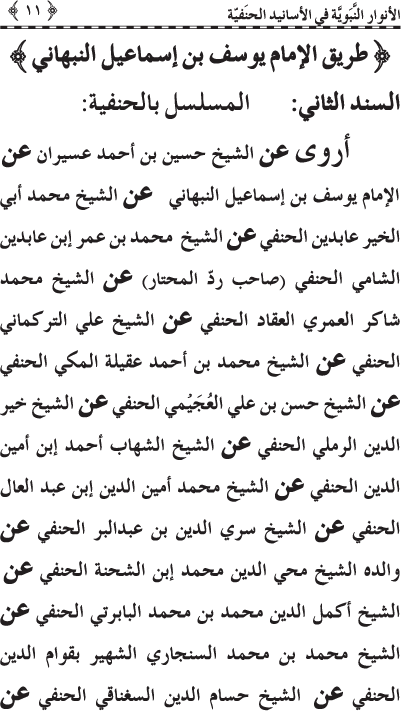 الأنوار النَّبَويَّة في الأسانيد الحنَفيّة ﴿ ١١ ﴾
﴿ طريق الإمام يوسف بن إسماعيل النبهاني ﴾
السند الثاني: المسلسل بالحنفية:
أروى عن الشيخ حسين بن أحمد عسيران عن
الإمام يوسف بن إسماعيل النبهاني عن الشيخ محمد أبي
الخير عابدين الحنفي عن الشيخ محمد بن عمر إبن عابدين
الشامي الحنفي (صاحب ردّ المحتار) عن الشيخ محمد
شاكر العمري العقاد الحنفي عن الشيخ علي التركماني
الحنفي عن الشيخ محمد بن أحمد عقيلة المكي الحنفي
عن الشيخ حسن بن علي العُجَيْمي الحنفي عن الشيخ خير
الدين الرملي الحنفي عن الشيخ الشهاب أحمد إبن أمين
الدين الحنفي عن الشيخ محمد أمين الدين إبن عبد العال
الحنفي عن الشيخ سري الدين بن عبدالبر الحنفي عن
والده الشيخ محي الدين محمد إبن الشحنة الحنفي عن
الشيخ أكمل الدين محمد بن محمد البابرتي الحنفي عن
الشيخ محمد بن محمد السنجاري الشهير بقوام الدين
الحنفي عن الشيخ حسام الدين السغناقي الحنفي عن